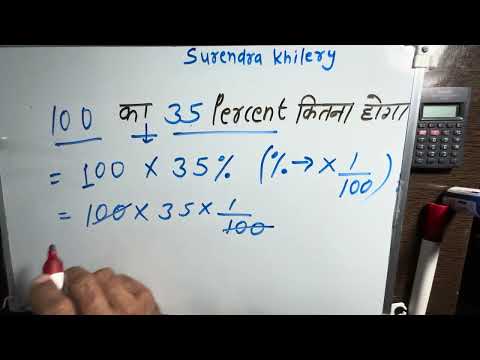 Surendra Khilery
100 का 35 Percent कितना होगा
= 100 × 35% (% → × 1/100)
= 100 × 35 × 1/100